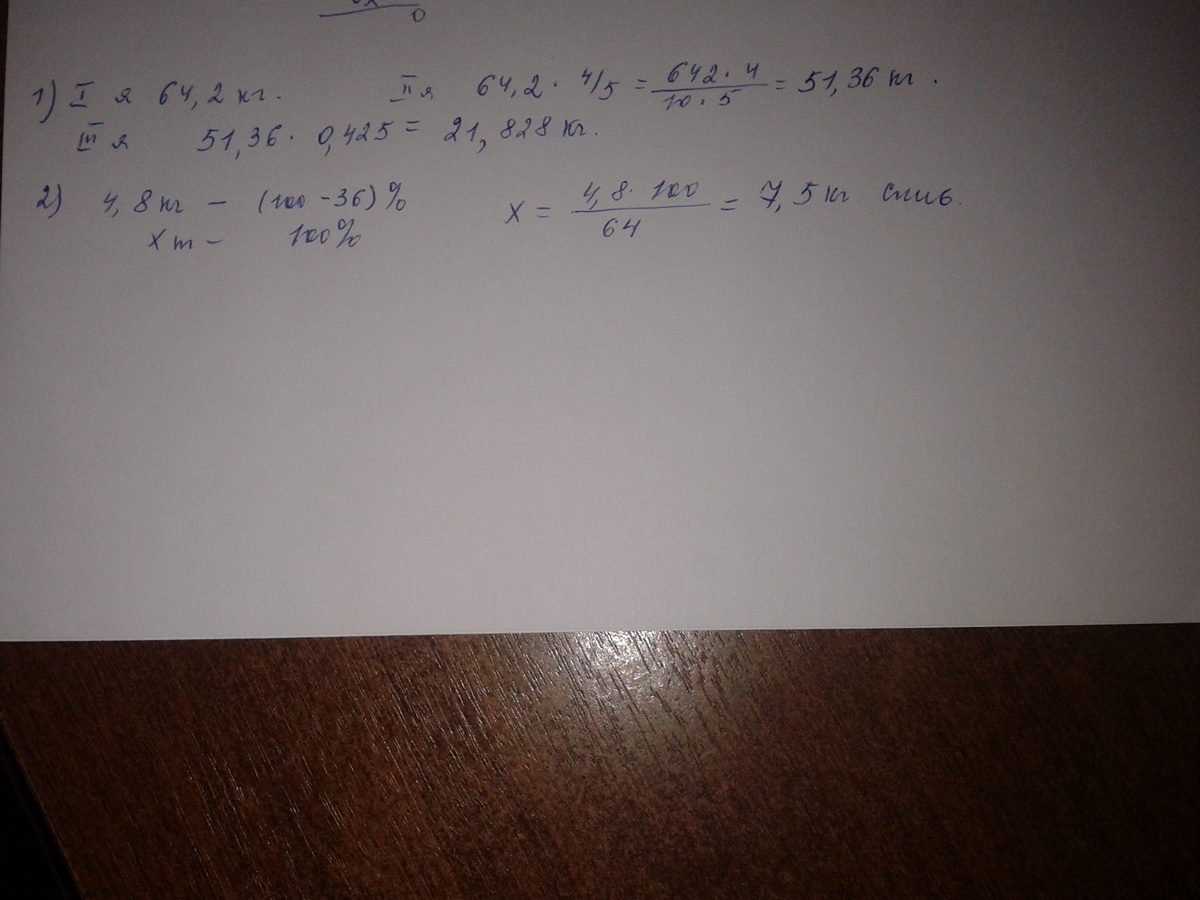 0
1) I я 64,2 кг. II я 64,2 · 4/5 = 642 · 4 / 10 · 5 = 51,36 кг.
III я 51,36 · 0,425 = 21,828 кг.
2) 4,8 кг – (100 - 36) % x = 4,8 · 100 / 64 = 7,5 кг слив.
x т – 100%